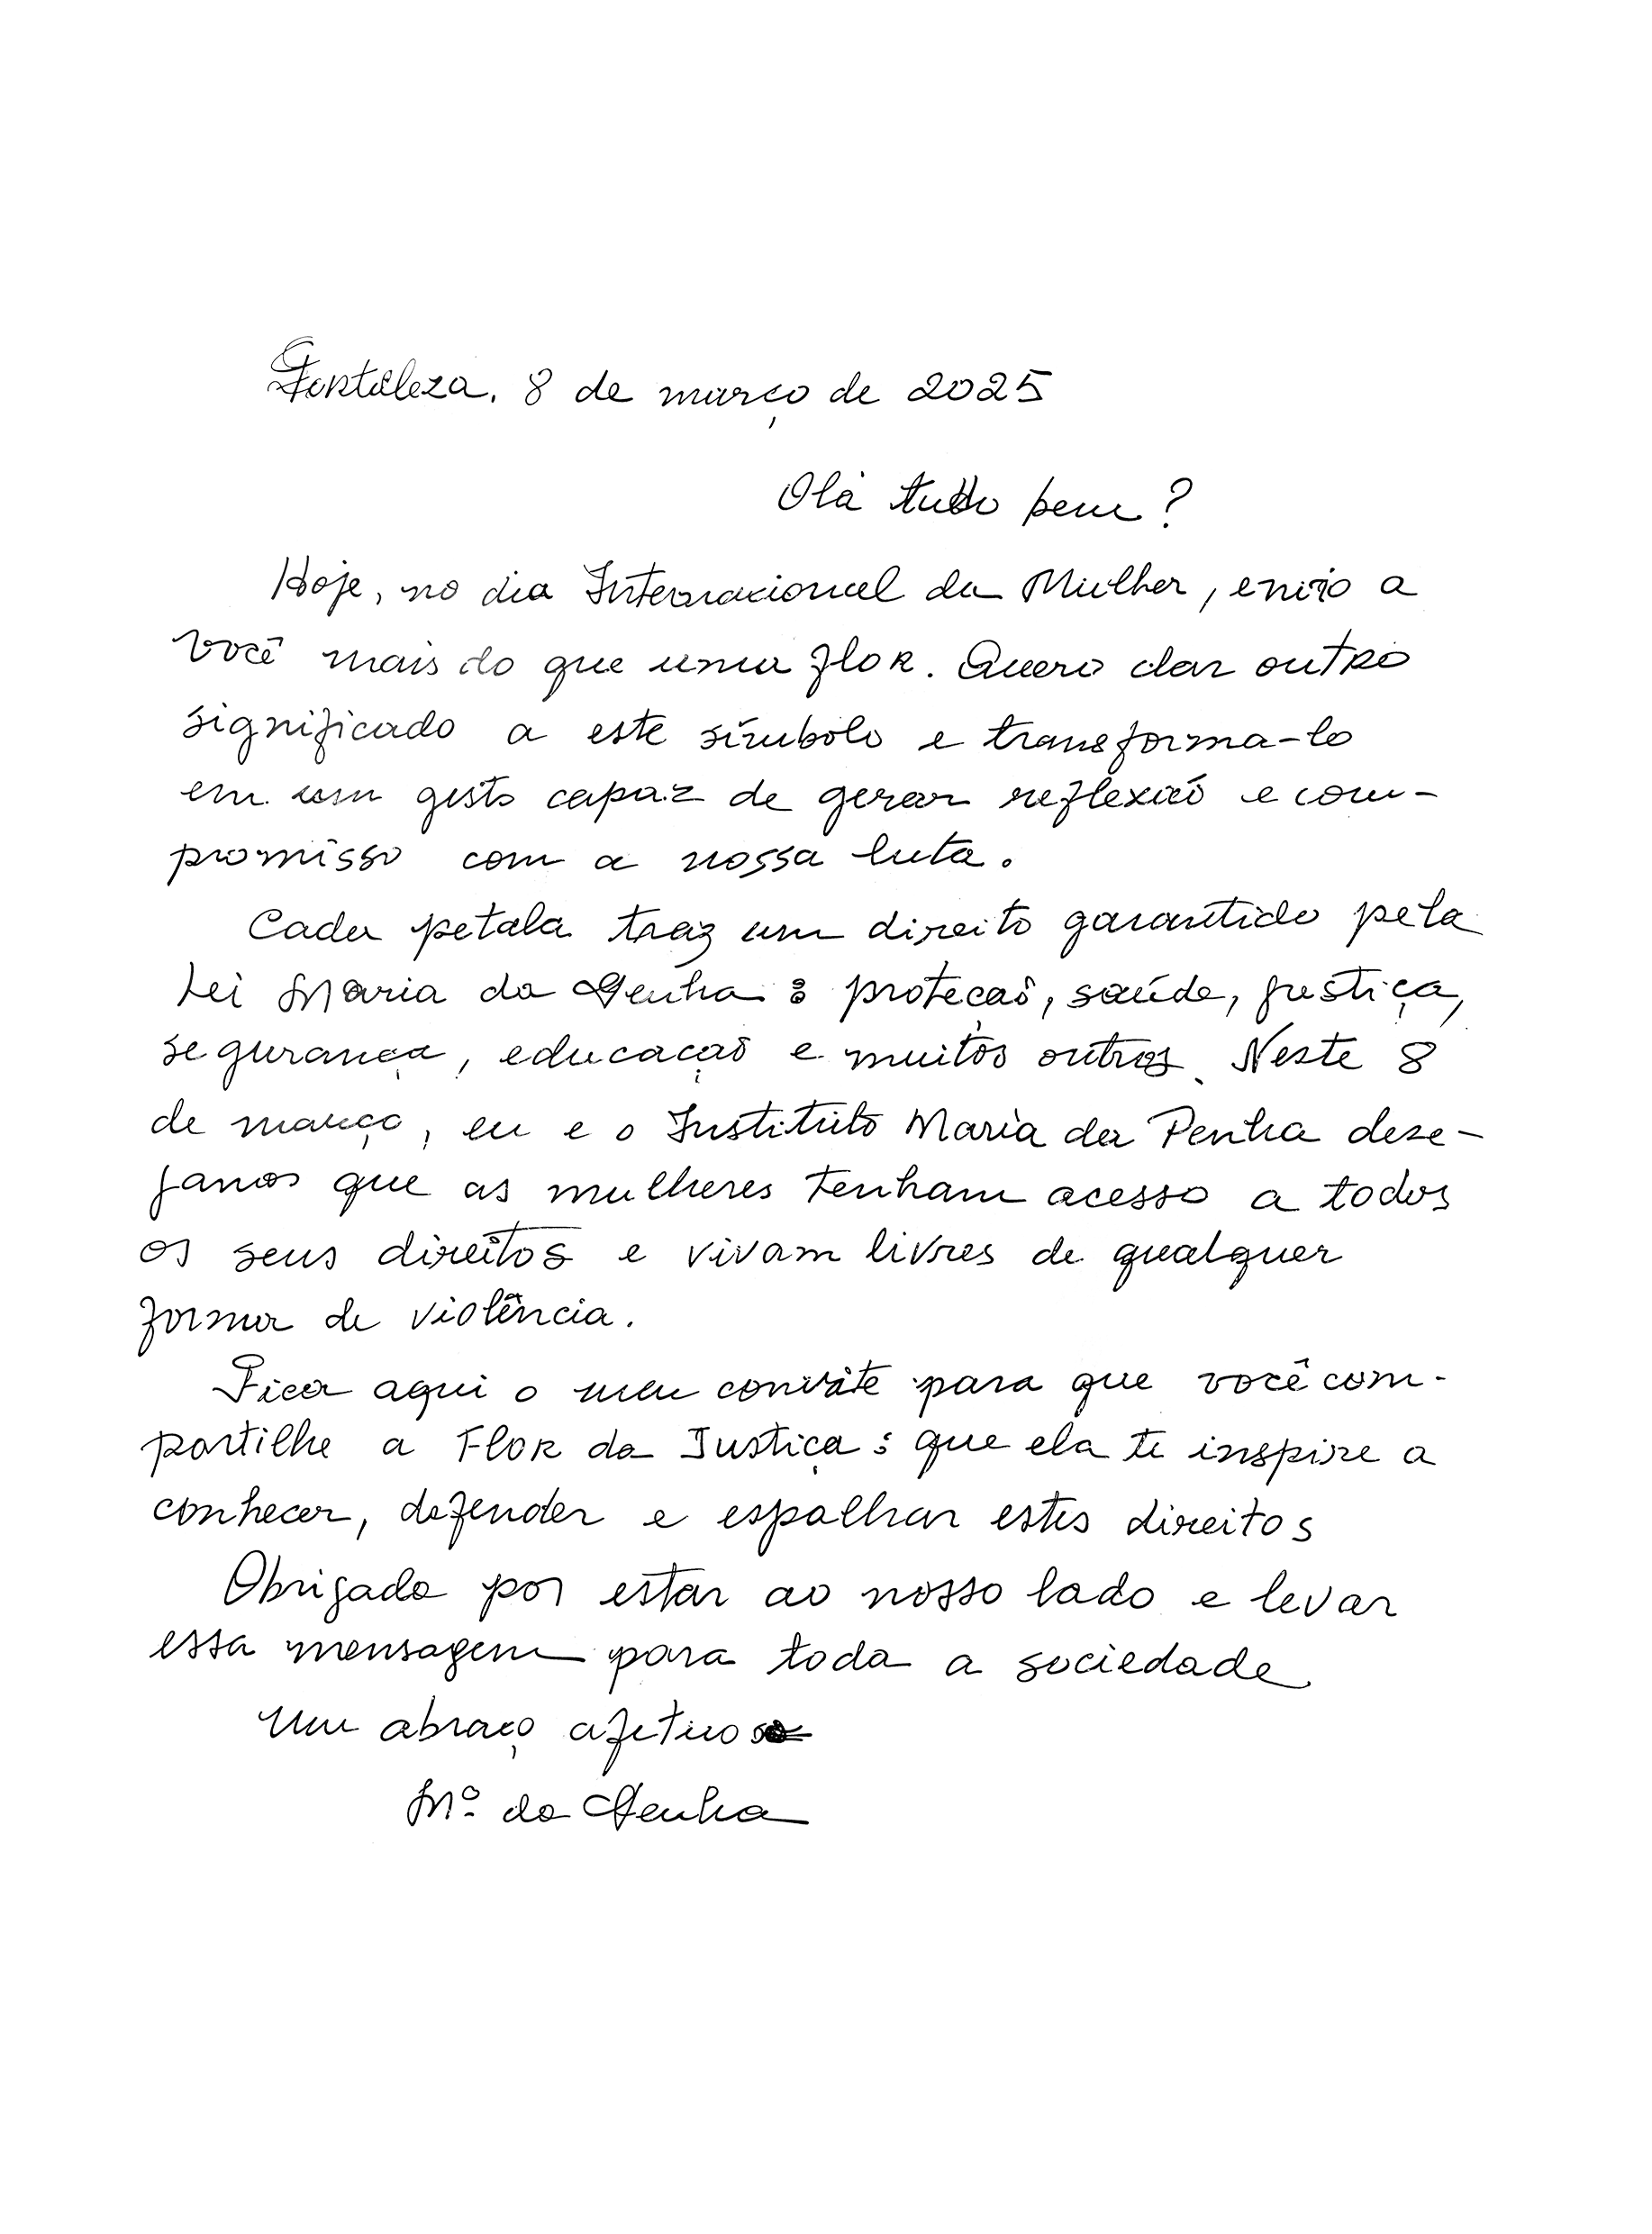 Fortaleza, 8 de março de 2025
Olá tudo bem?
Hoje, no dia Internacional da Mulher, envio a
você mais do que uma flor. Quero dar outro
significado a este símbolo e transforma-lo
em um gesto capaz de gerar reflexão e com-
promisso com a nossa luta.
Cada petala traz um direito garantido pela
Lei Maria da Penha: proteção, saúde, justiça,
segurança, educação e muitos outros. Neste 8
de março, eu e o Instituto Maria da Penha dese-
jamos que as mulheres tenham acesso a todos
os seus direitos e vivam livres de qualquer
forma de violência.
Fica aqui o meu convite para que você com-
partilhe a Flor da Justiça: que ela te inspire a
conhecer, defender e espalhar estes direitos
Obrigada por estar ao nosso lado e levar
essa mensagem para toda a sociedade
Um abraço afetuoso
Mª da Penha